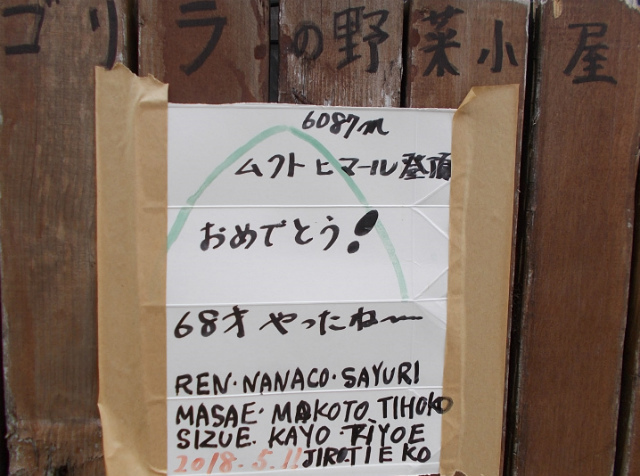 ゴリラの野菜小屋
6087m
ムクトヒマール登頂
おめでとう!
68才 やったねー
REN・NANACO・SAYURI
MASAE・MAKOTO TIHOKO
SIZUE. KAYO・KIYOE
2018.5.11 JIRO TIEKO